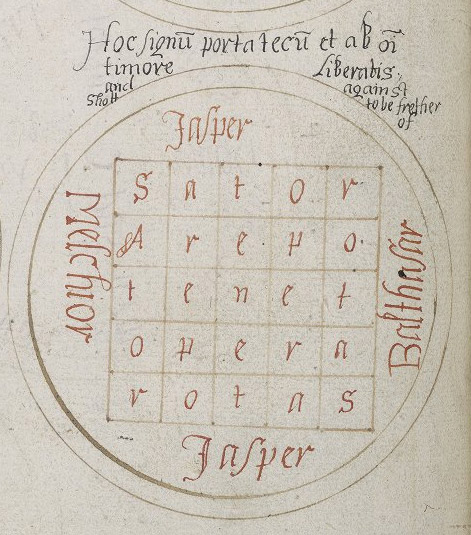 Hoc signū porta tecū et ab oī
timore liberatis
and against
Shott to be frether
of
Jasper
Melchior
Balthasar
S a t o r
A r e p o
t e n e t
o p e r a
r o t a s
Jasper